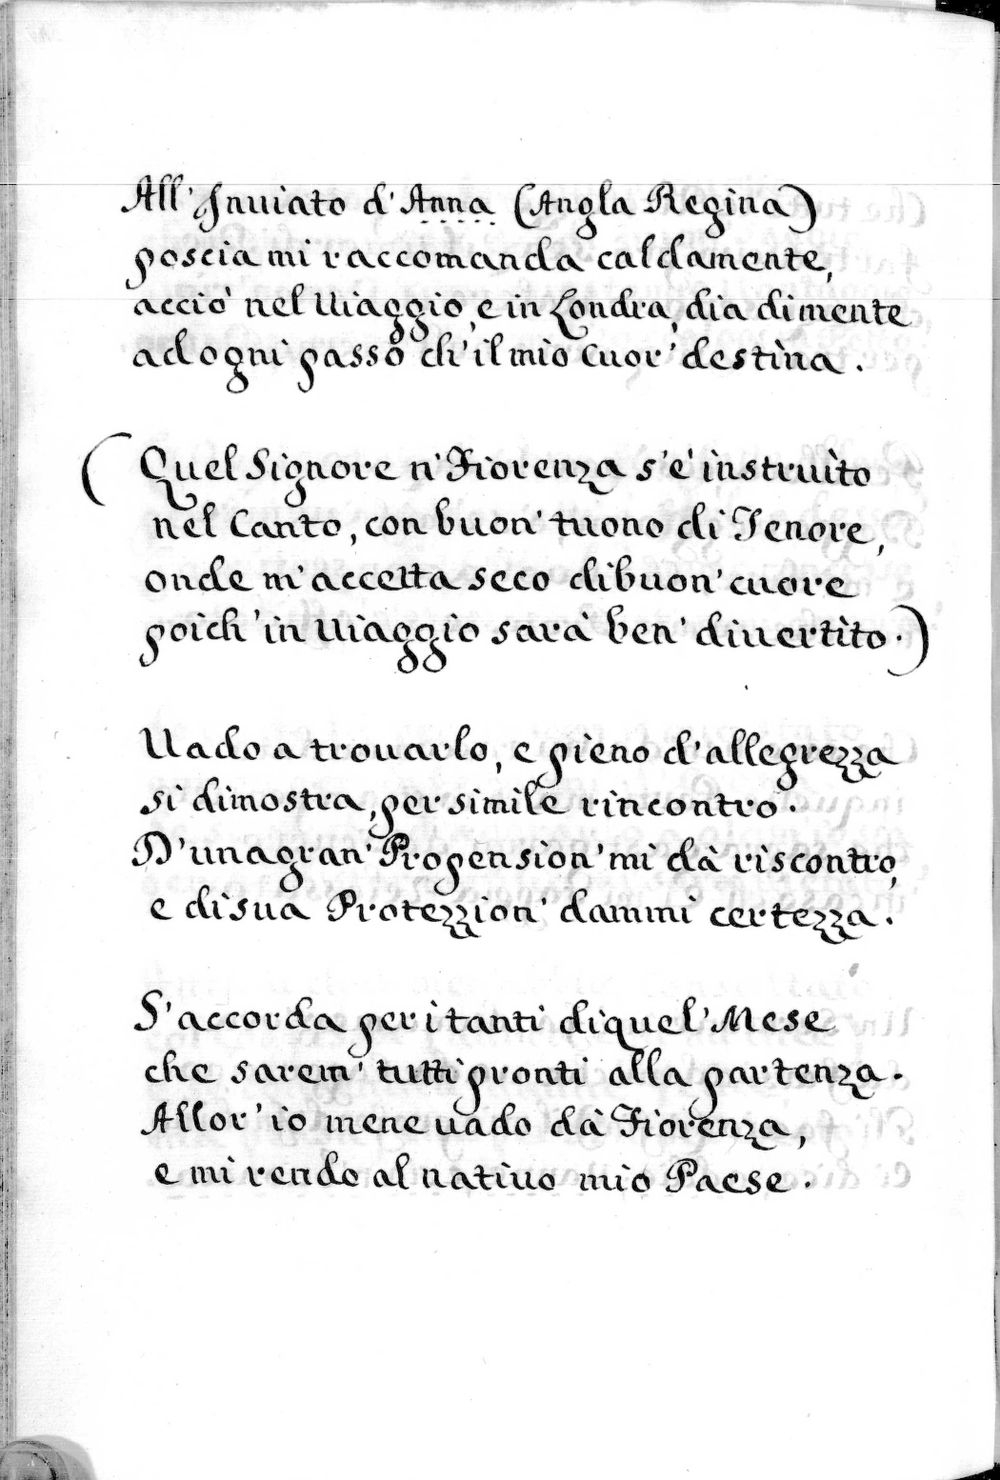 All' Inuiato d' Anna (Angla Regina)
poscia mi raccomanda caldamente,
acciò nel Uiaggio, e in Londra, dia di mente
ad ogni passo ch' il mio Cuor' destina.
(Quel Signore n' Fiorenza s' è instruito
nel Canto, con buon' tuono di Tenore,
onde m' accetta seco di buon' cuore
poich' in Uiaggio sarà ben' diuertito.)
Uado a trouarlo, e pieno d' allegrezza
si dimostra, per simile rincontro.
D' una gran' Propension' mi dà riscontro,
e di sua Protezzion' dammi certezza.
S' accorda per i tanti di quel' Mese
che sarem' tutti pronti alla partenza.
Allor' io mene uado dà Fiorenza,
e mi rendo al natiuo mio Paese.